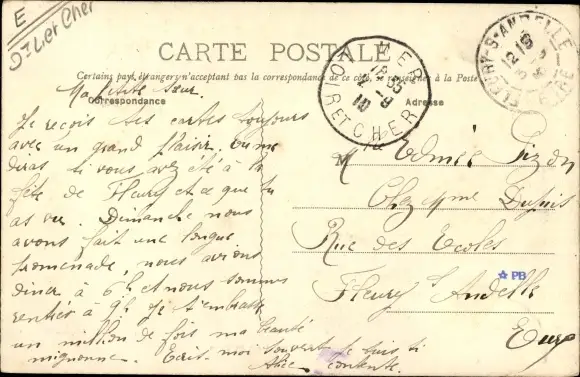 E
Dt Loir et Cher
CARTE POSTALE
Certains pays étrangers n'acceptant pas la correspondance de ce côté, se renseigner à la Poste
Correspondance
Adresse
MER
18 35
2 - 9
10
LOIR ET CHER
FLEURY-S-ANDELLE
EURE
Ma petite sœur.
Je reçois tes cartes toujours
avec un grand plaisir. Tu me
diras si vous avez été à la
fête de Fleury et ce que tu
as vu. Dimanche nous
avons fait une longue
promenade, nous avions
diner à 6h et nous sommes
rentrés à 9h. Je t'embrasse
un million de fois ma
mignonne. Ecris-moi souvent je suis si
contente.
Alice
M lle Edmée
Chez Mme Dupuis
Rue des Ecoles
Fleury s Andelle
Eure
PB